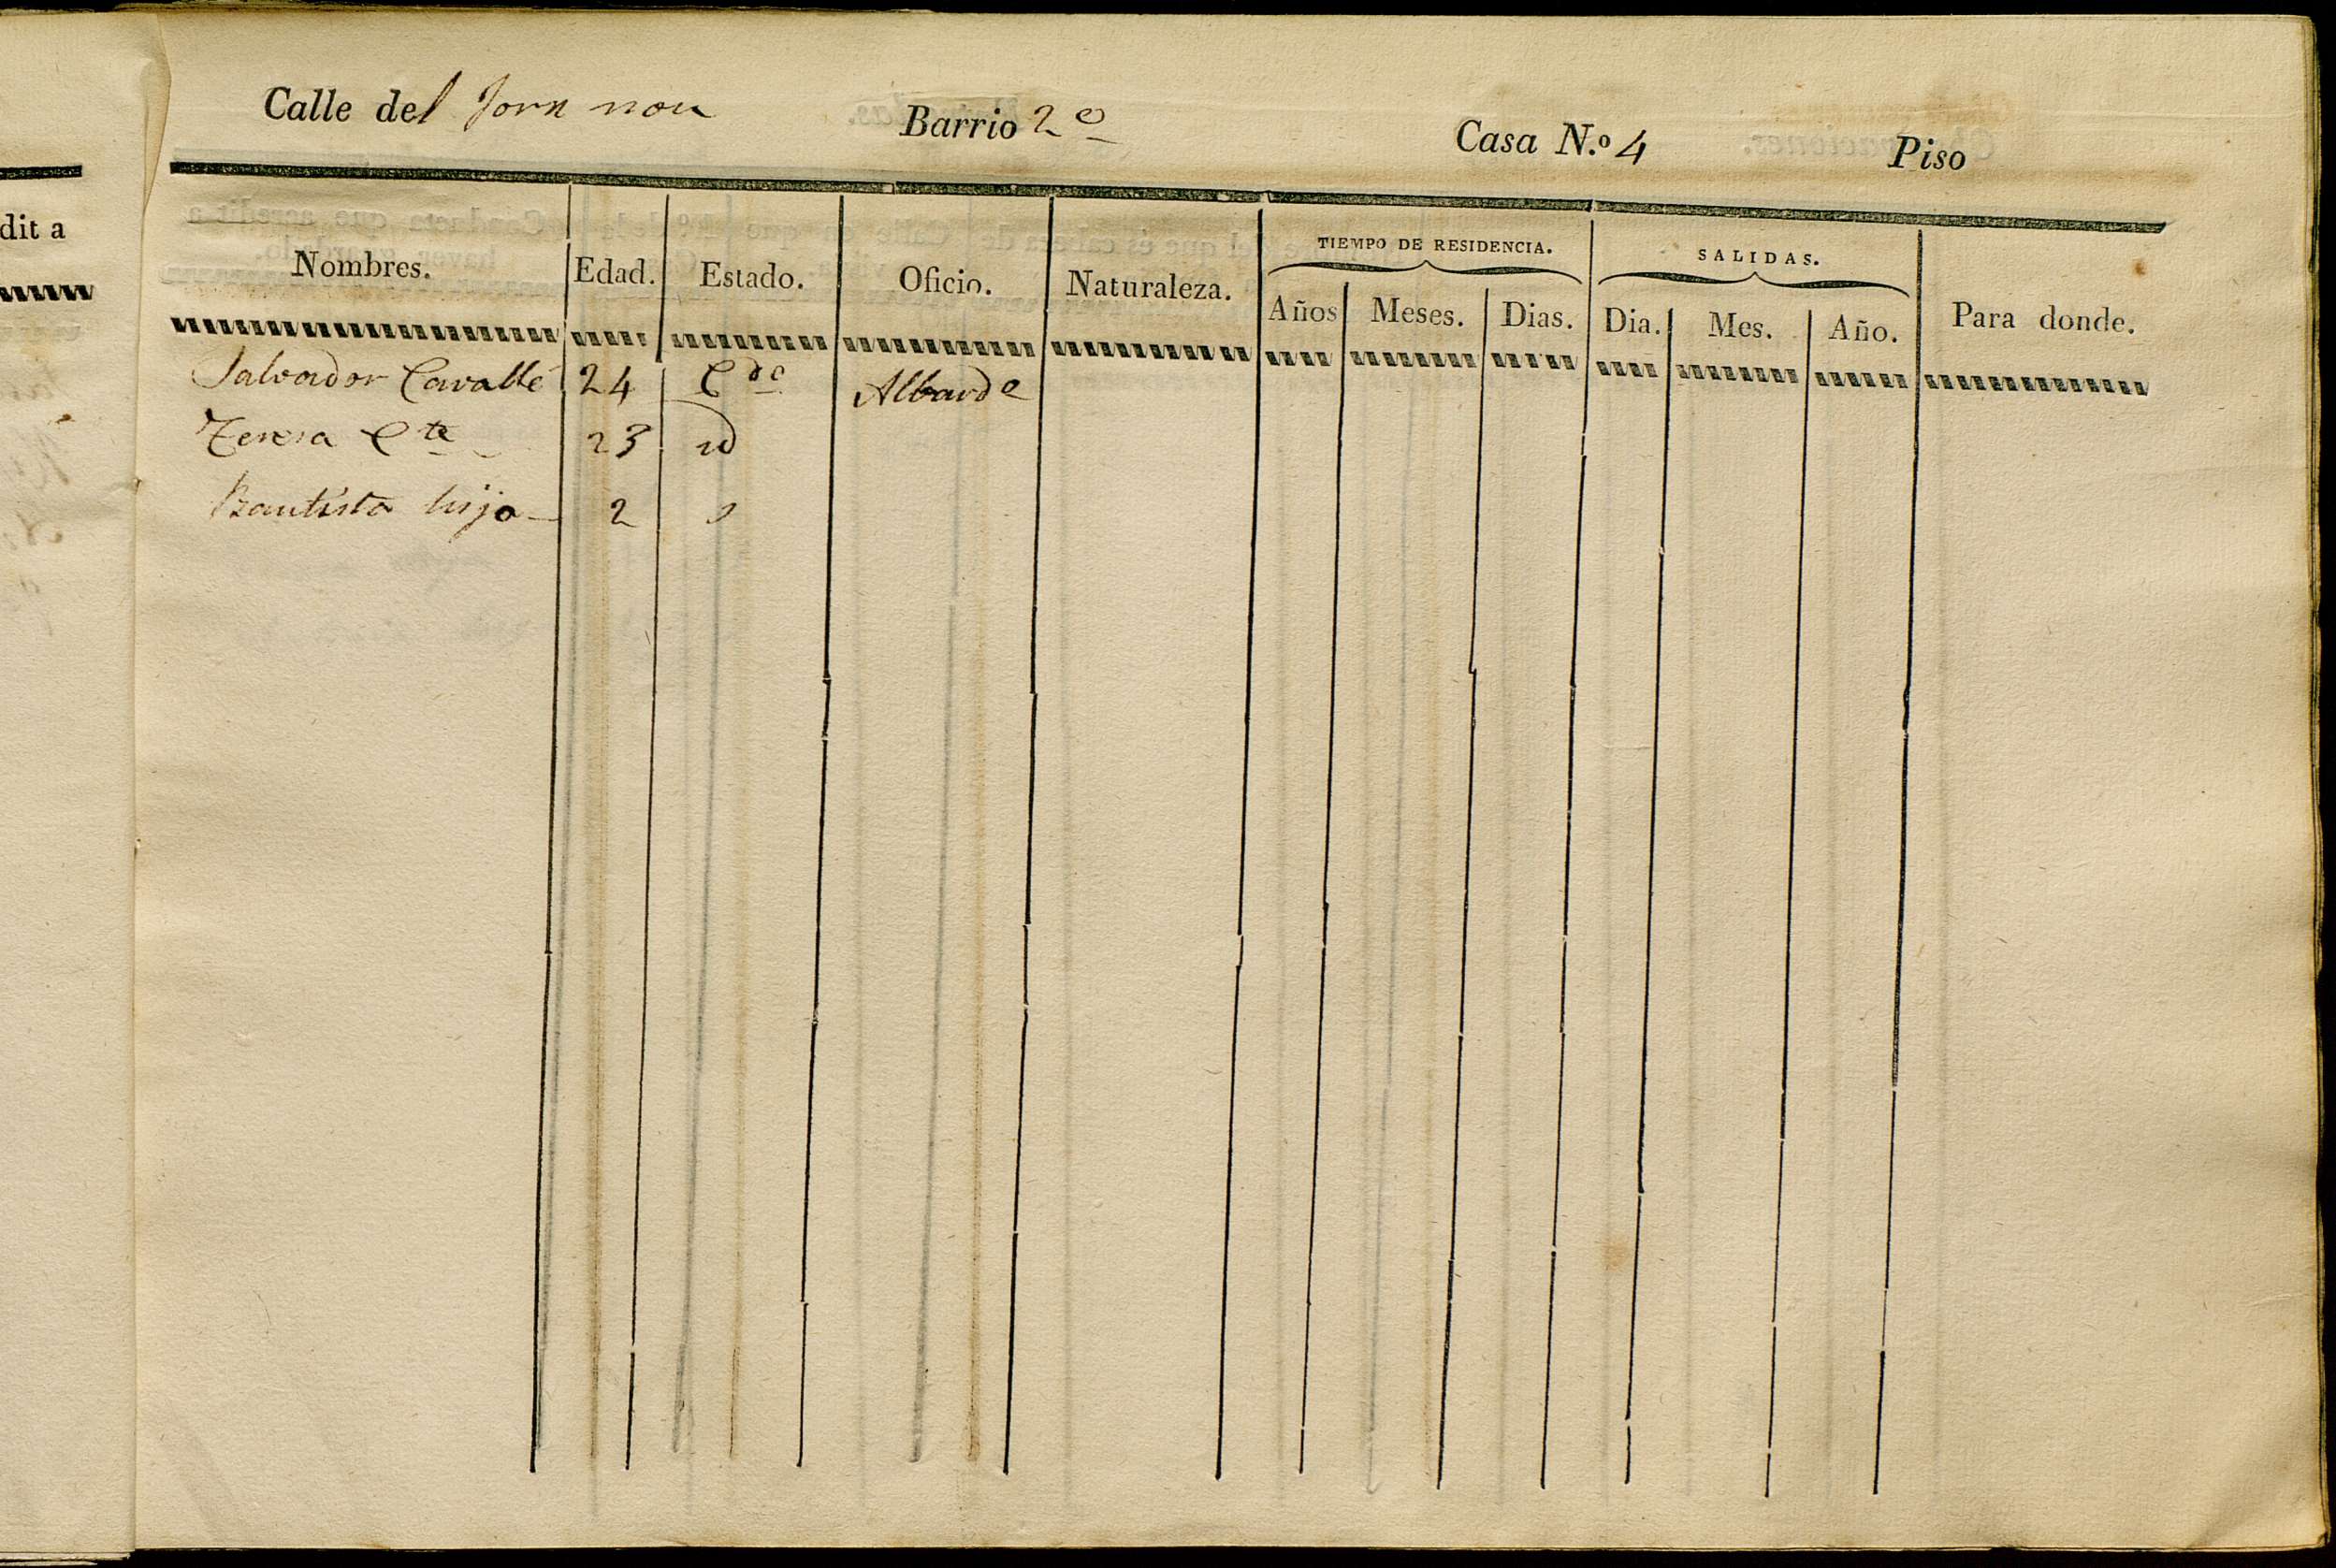 Calle del forn nou Barrio 2º Casa N.º 4 Piso
dit a
Nombres. Edad. Estado. Oficio. Naturaleza. TIEMPO DE RESIDENCIA. SALIDAS. Para donde.
Años Meses. Dias. Dia. Mes. Año.
Salvador Cavallé 24 Cdo Albarde
Teresa Cte 23 id
Bautista hijo 2 s